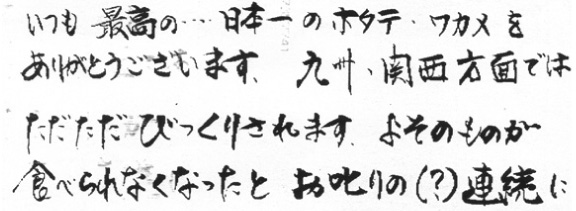 いつも 最高の…日本一のホタテ・ワカメを
ありがとうございます。九州、関西方面では
ただただびっくりされます。よそのものが
食べられなくなったと お叱りの(?)連続に